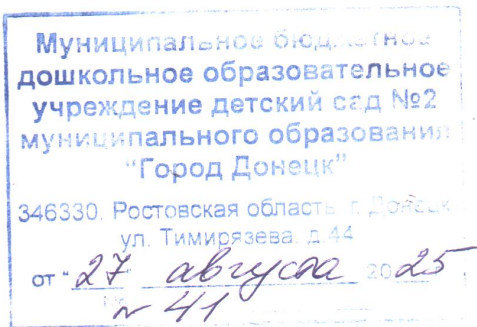 Муниципальное бюджетное
дошкольное образовательное
учреждение детский сад №2
муниципального образования
"Город Донецк"
346330. Ростовская область г. Донецк
ул. Тимирязева. д.44
от "27" августа 2025
№ 41